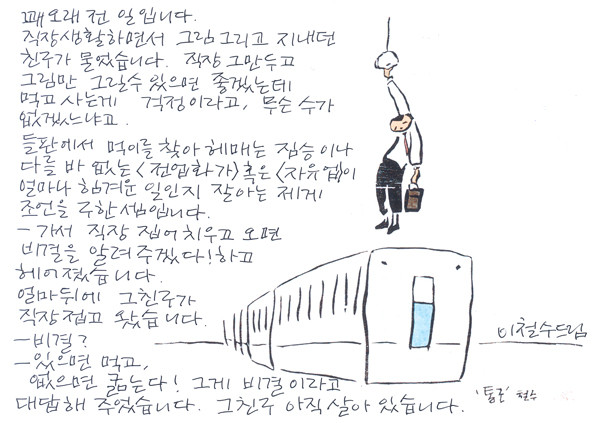 꽤 오래 전 일입니다.
직장생활하면서 그림 그리고 지내던
친구가 물었습니다. 직장 그만두고
그림만 그릴수 있으면 좋겠는데
먹고 사는게 걱정이라고, 무슨 수가
없겠느냐고.
들판에서 먹이를 찾아 헤매는 짐승이나
다를 바 없는 <전업화가> 혹은 <자유업>이
얼마나 힘겨운 일인지 잘아는 제게
조언을 구한 셈입니다.
- 가서 직장 집어치우고 오면
비결을 알려주겠다! 하고
헤어졌습니다.
얼마뒤에 그친구가
직장 접고 왔습니다.
- 비결?
- 있으면 먹고,
없으면 굶는다! 그게 비결이라고
대답해 주었습니다. 그친구 아직 살아 있습니다.
이철수드림
'통근' 철수